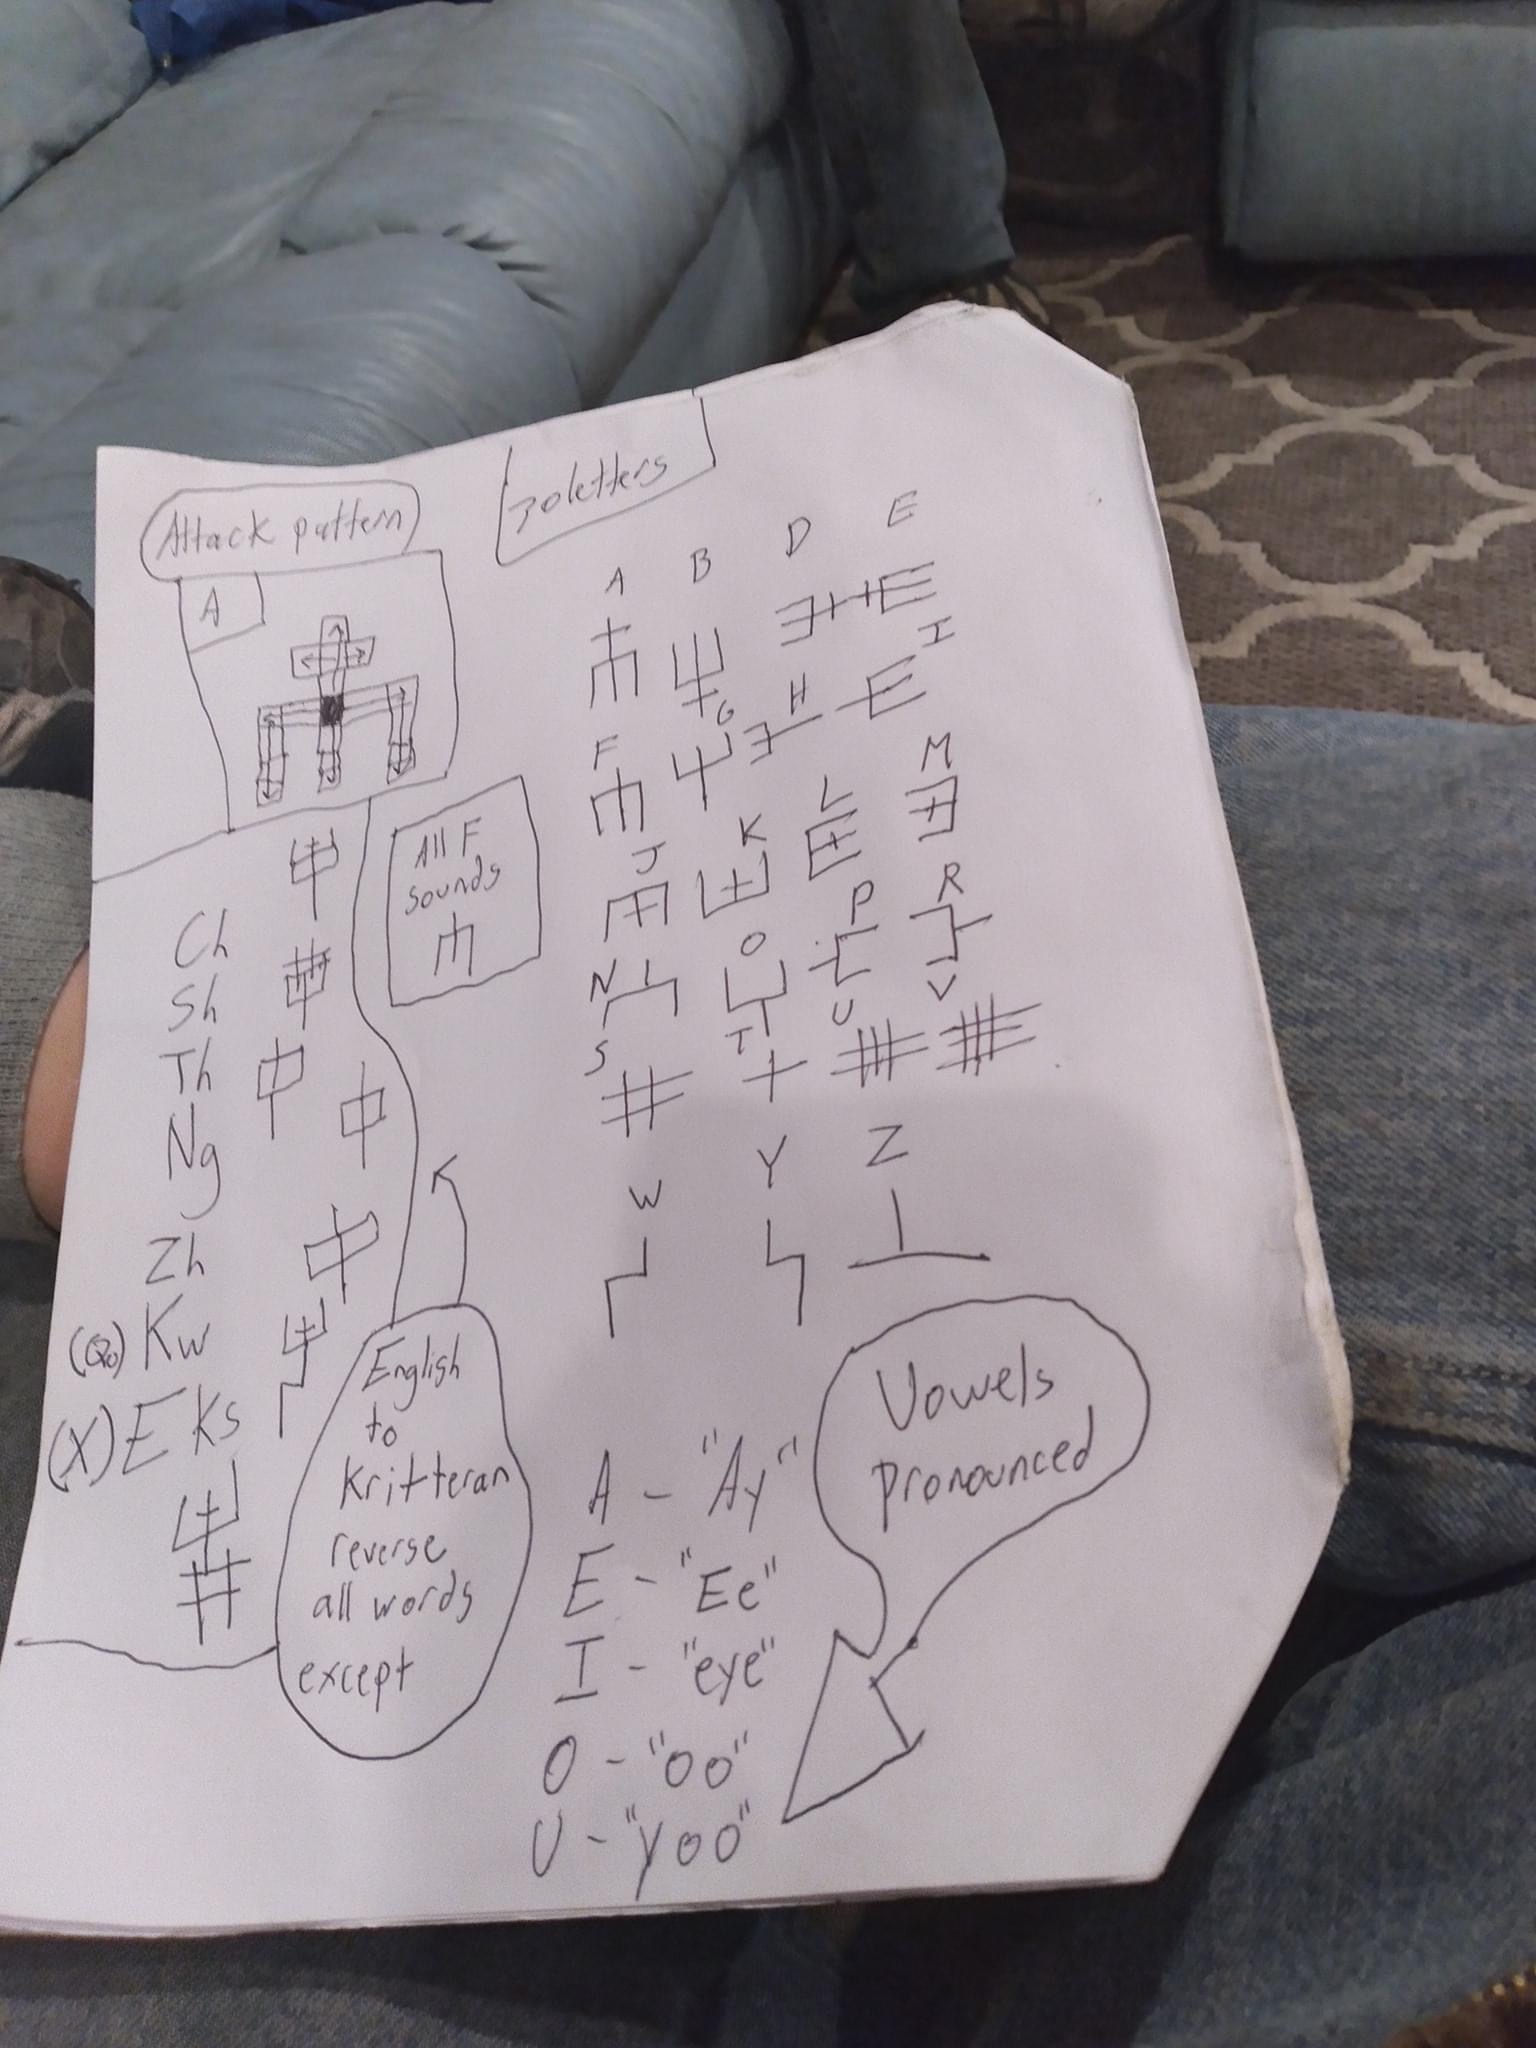 Attack pattern
A
30 letters
A B D E
F G H I
J K L M
N O P R
S T U V
W Y Z
All F
sounds
Ch
Sh
Th
Ng
Zh
(Q) Kw
(X) E Ks
English
to
Kritteran
reverse
all words
except
Vowels
pronounced
A - "Ay"
E - "Ee"
I - "eye"
O - "oo"
U - "yoo"